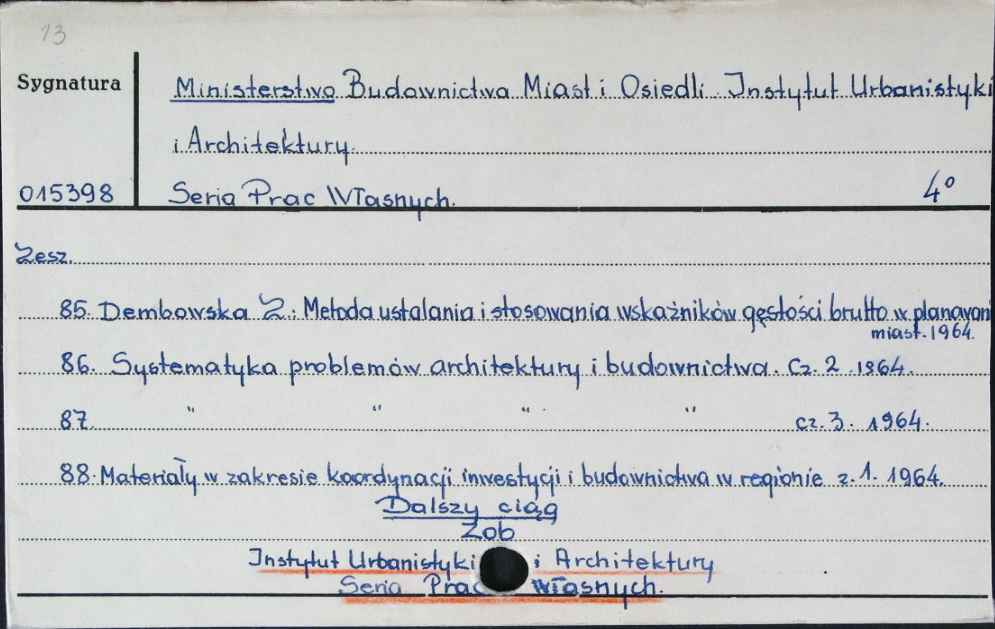 13
Sygnatura
Ministerstwo Budownictwa Miast i Osiedli. Instytut Urbanistyki
i Architektury.
015398 Seria Prac Własnych. 4°
Zesz.
85. Dembowska Z.: Metoda ustalania i stosowania wskaźników gęstości brutto w planowan
miast. 1964.
86. Systematyka problemów architektury i budownictwa. Cz. 2. 1964.
87. " " " " cz. 3. 1964.
88. Materiały w zakresie koordynacji inwestycji i budownictwa w regionie z. 1. 1964.
Dalszy ciąg
Zob
Instytut Urbanistyki i Architektury
Seria Prac własnych.